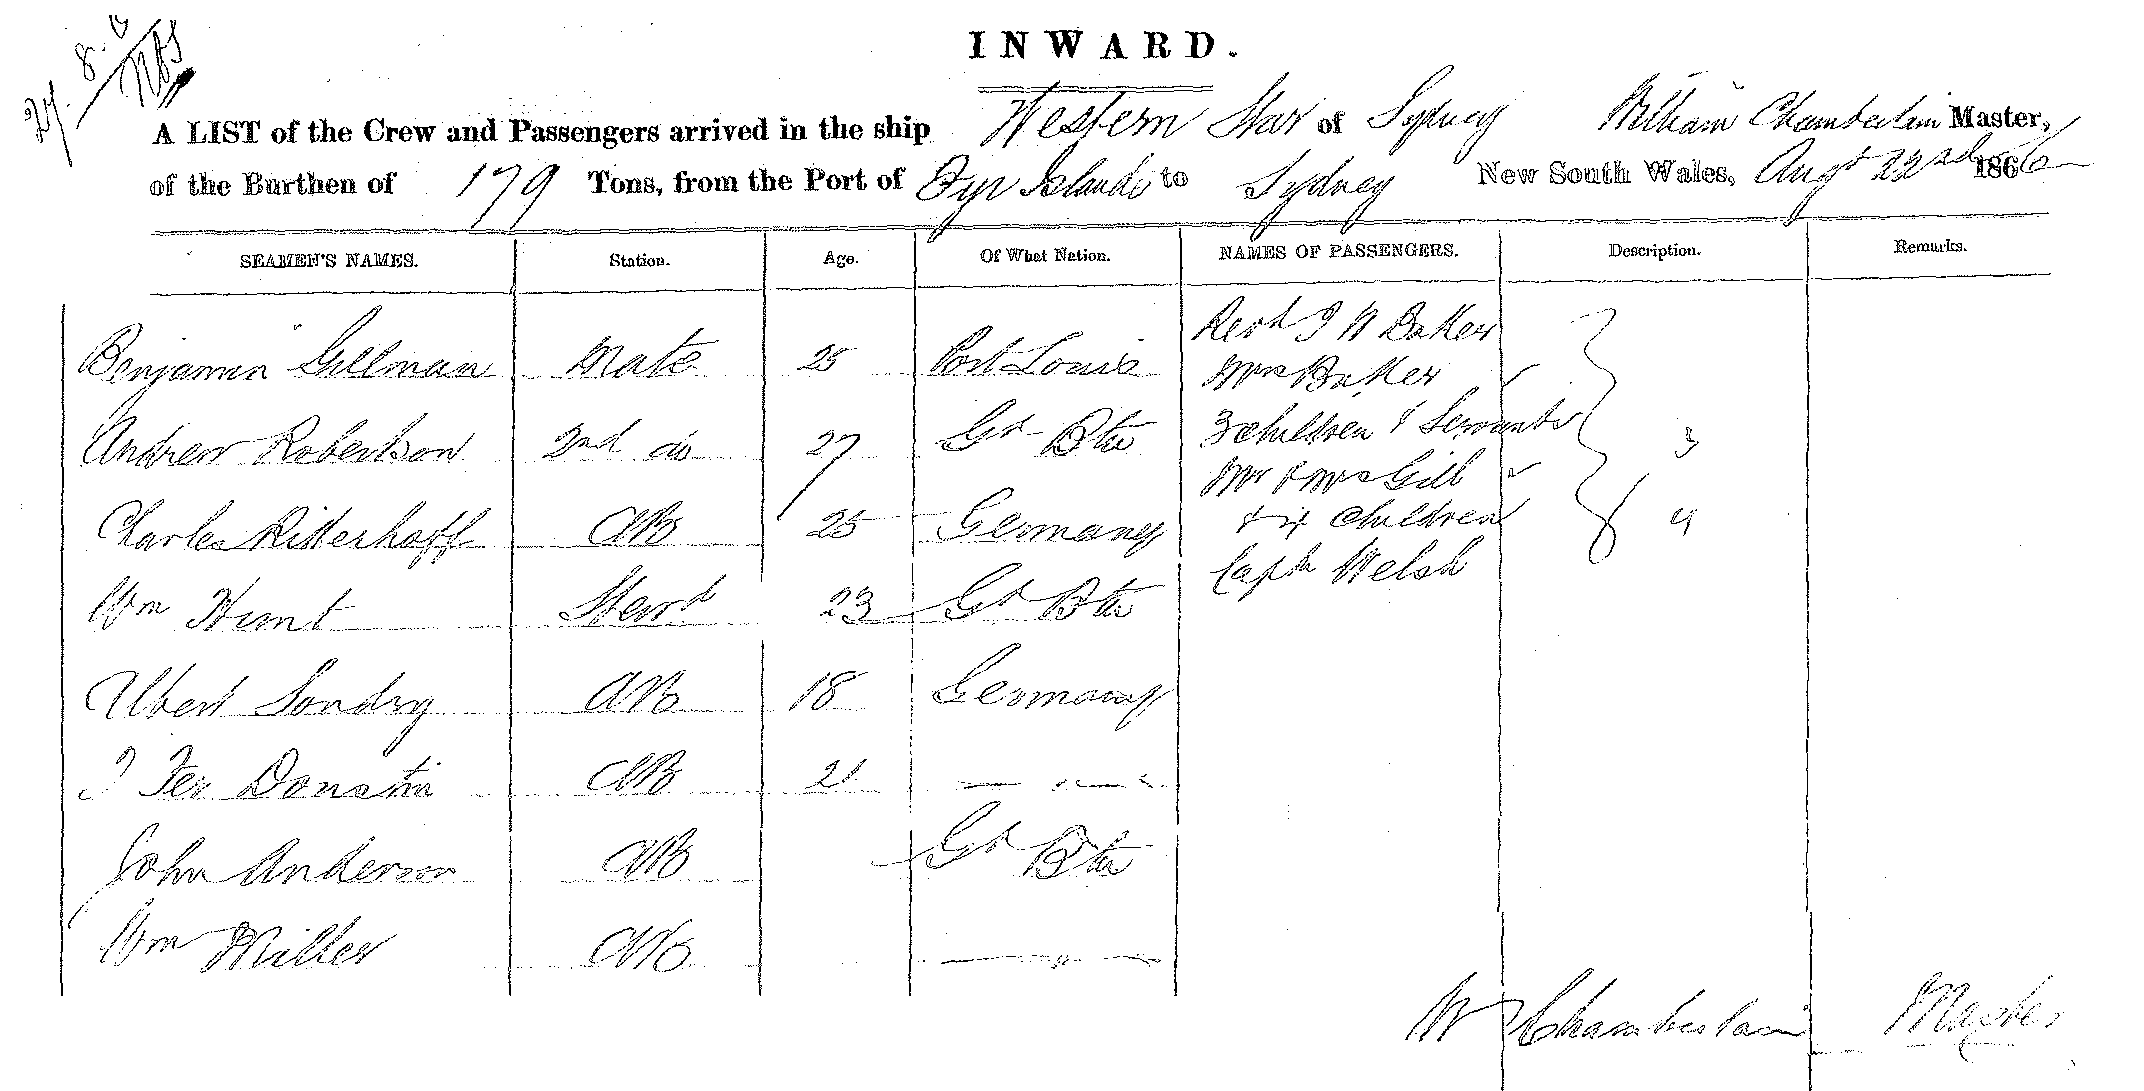 INWARD.
A LIST of the Crew and Passengers arrived in the ship Western Star of Sydney William Chamberlain Master,
of the Burthen of 179 Tons, from the Port of Islands to Sydney New South Wales, Augt 22nd 1866
SEAMEN'S NAMES. Station. Age. Of What Nation. NAMES OF PASSENGERS. Description. Remarks.
Revd J W Baker
Benjamin Gillman Mate 25 Port Louis Mrs Baker
Andrew Robertson 2nd do 27 Gt Btn 3 children & Servants 3
Mr & Mrs Gill
Charles Ritterhoff AB 25 Germany & 4 children 4
Capt Welsh
Wm Hunt Stewd 23 Gt Btn
Albert Sondry AB 18 Germany
J Fer AB 21 — " —
John Anderson AB Gt Btn
Wm Miller AB — " —
W Chamberlain Master